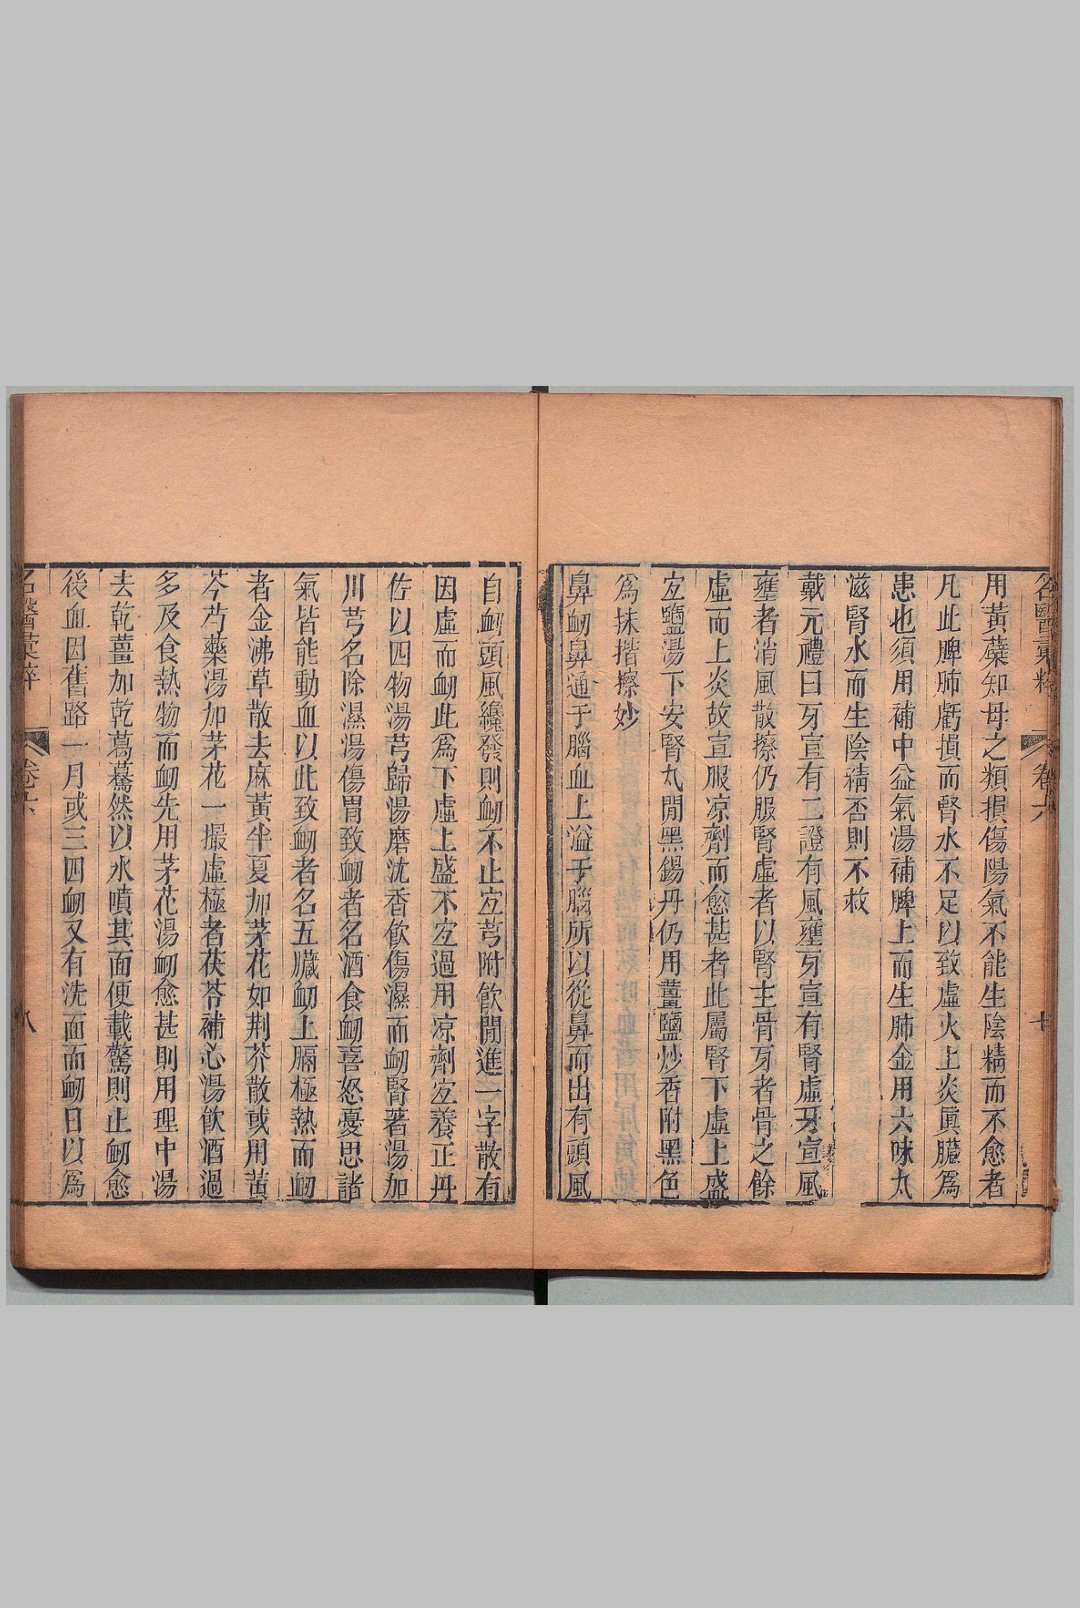 名醫彙粹 卷六 七
用黃蘗知母之類損傷陽氣不能生陰精而不愈者
凡此脾肺虧損而腎水不足以致虛火上炎眞臟爲
患也須用補中益氣湯補脾土而生肺金用六味丸
滋腎水而生陰精否則不救
戴元禮曰牙宣有二證有風壅牙宣有腎虛牙宣風
壅者消風散擦仍服腎虛者以腎主骨牙者骨之餘
虛而上炎故宣服凉劑而愈甚者此屬腎下虛上盛
宐鹽湯下安腎丸閒黑錫丹仍用薑鹽炒香附黑色
爲抹揩擦妙
鼻衂鼻通于腦血上溢于腦所以從鼻而出有頭風
自衂頭風纔發則衂不止宐芎附飮閒進一字散有
因虛而衂此爲下虛上盛不宐過用凉劑宐養正丹
佐以四物湯芎歸湯磨沈香飮傷濕而衂腎著湯加
川芎名除濕湯傷胃致衂者名酒食衂喜怒憂思諸
氣皆能動血以此致衂者名五臟衂上膈極熱而衂
者金沸草散去麻黃半夏加茅花如荆芥散或用黃
芩芍藥湯加茅花一撮虛極者茯苓補心湯飮酒過
多及食熱物而衂先用茅花湯衂愈甚則用理中湯
去乾薑加乾葛驀然以水噴其面便載驚則止衂愈
後血因舊路一月或三四衂又有洗面而衂日以爲
名醫彙粹 卷六 八